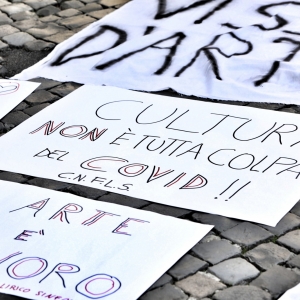 VIS
D'ART
CULTURA
NON È TUTTA COLPA
DEL COVID !!
C.N.F.L.S.
ARTE
E'
VORO
LIRICO SINFO